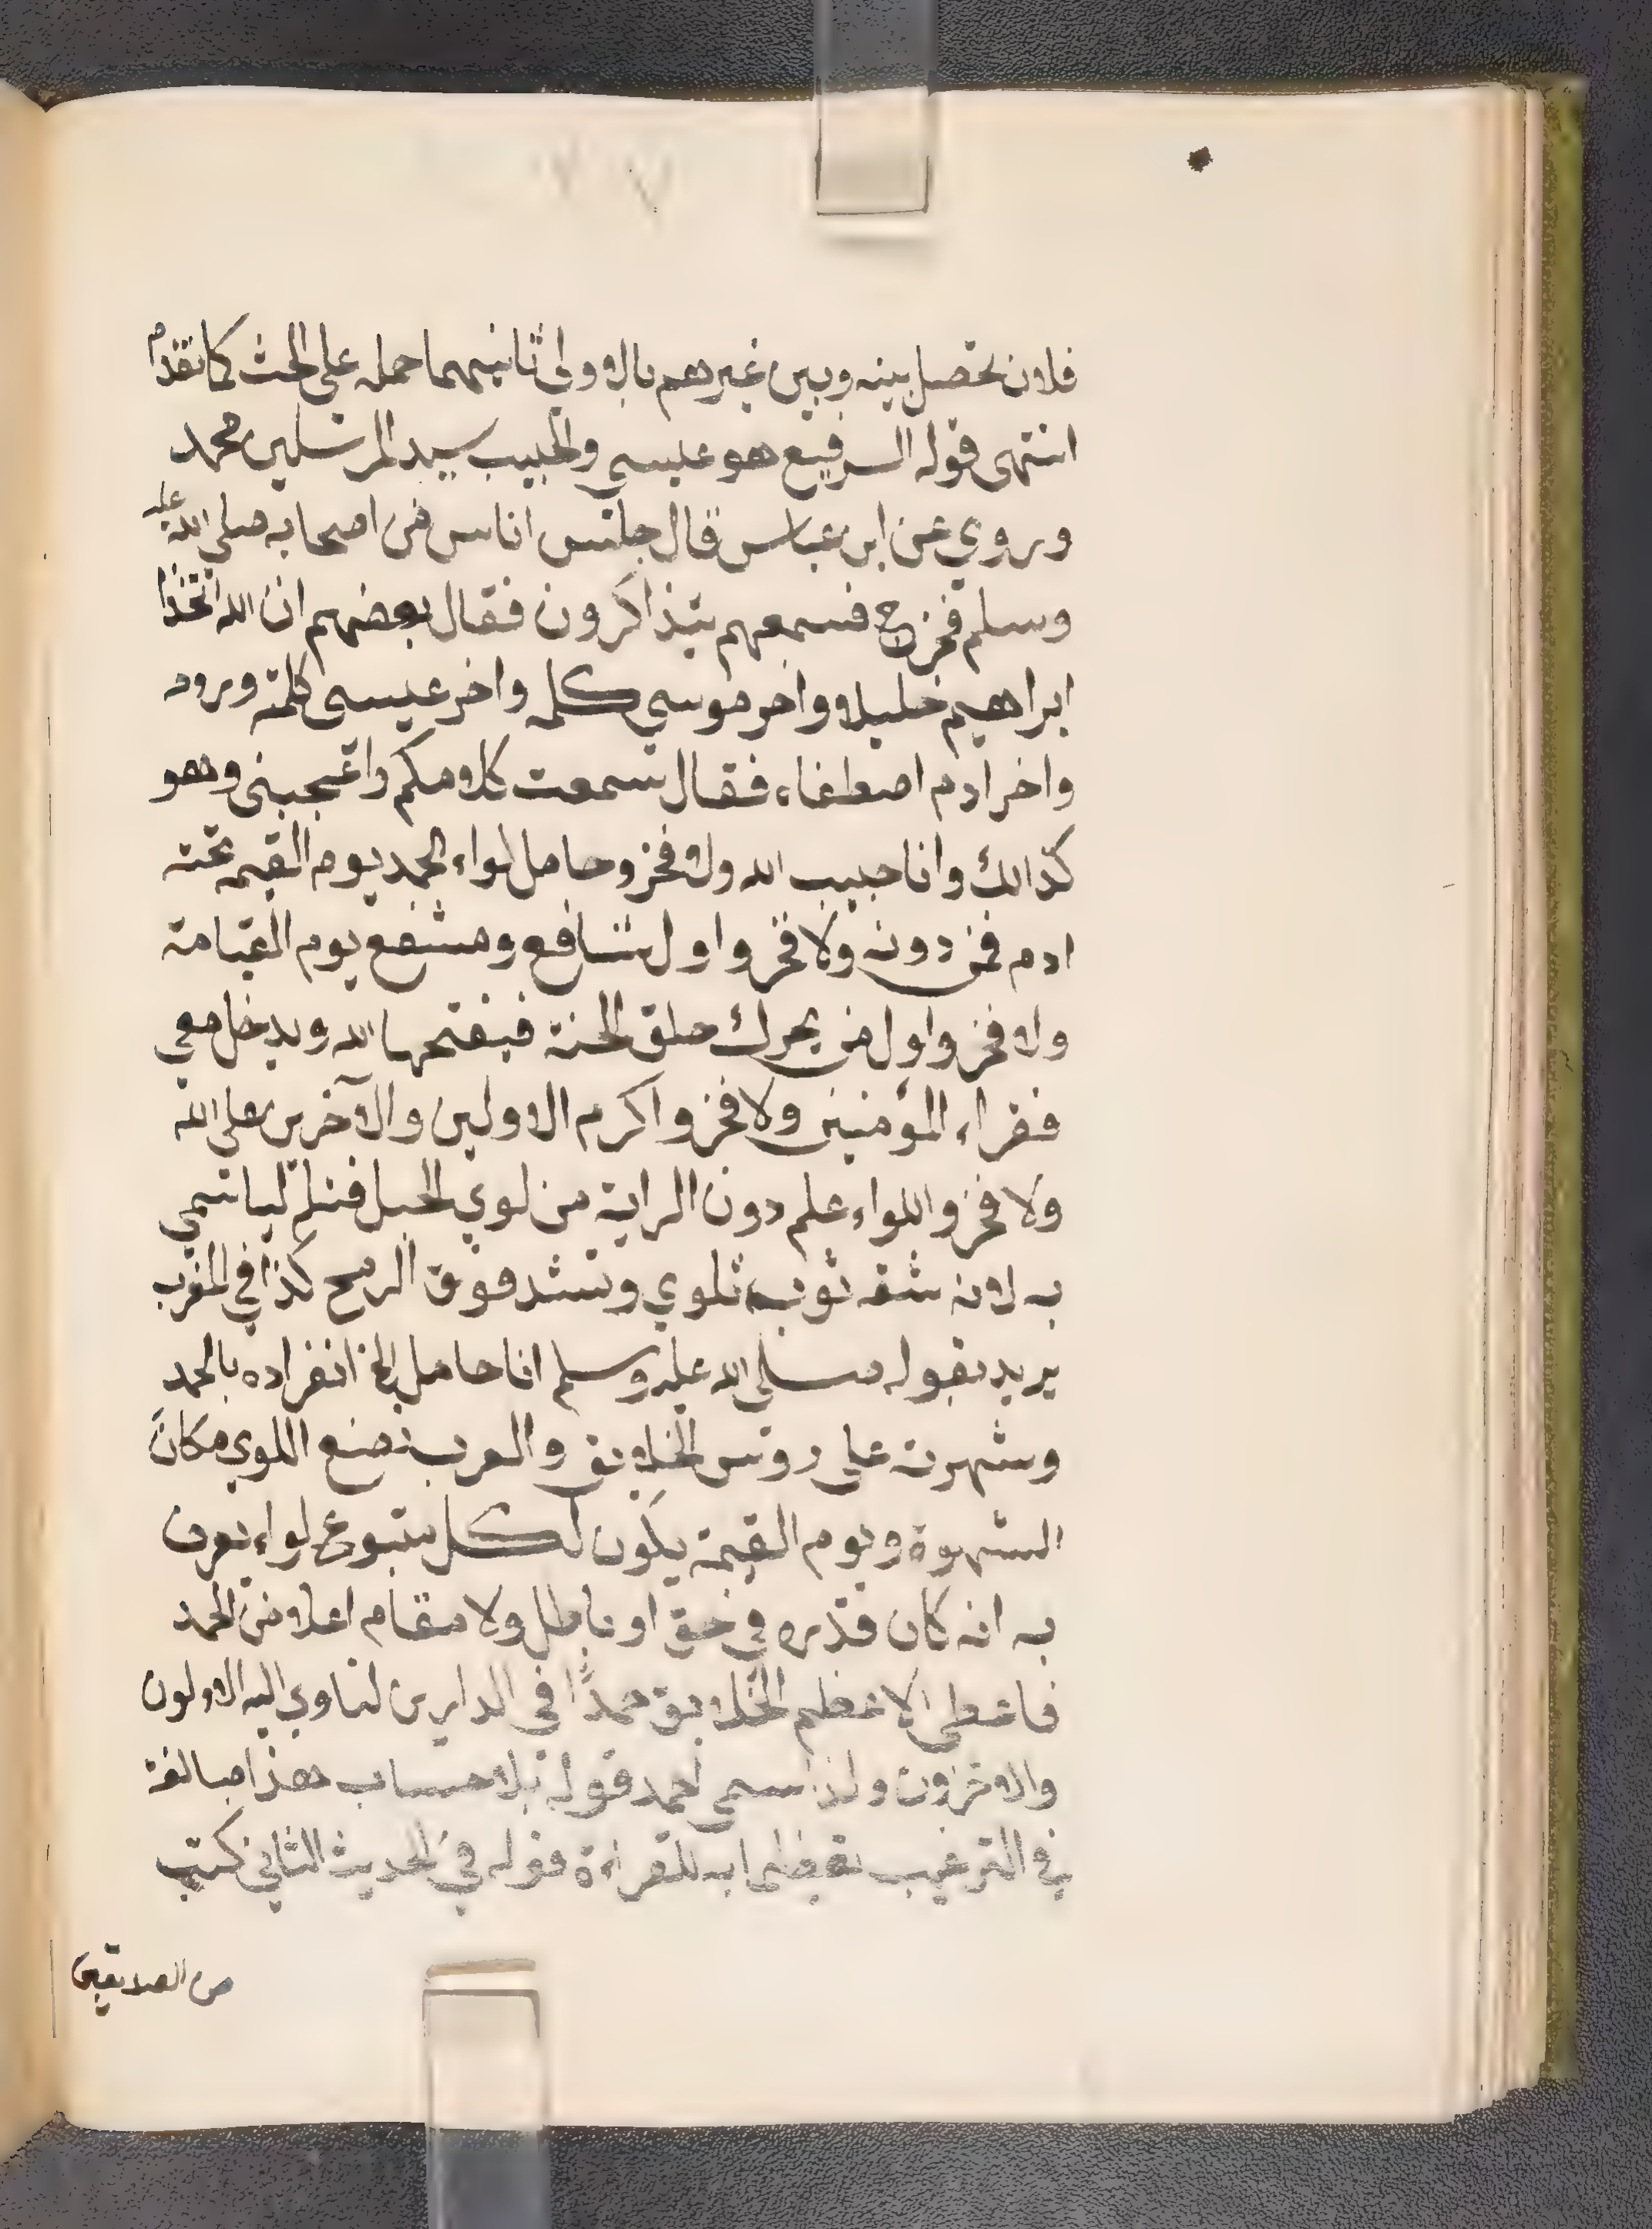 فلان تحصل بينه وبين غيرهم بالاولي ثانيهما حمله على الحث كما تقدم
انتهى قوله الرفيع هو عليسي والحبيب سيد المرسلين محمد
وروي عن ابن عباس قال جلس اناس من اصحابه صلى الله عليه
وسلم فخرج فسمعهم يتذاكرون فقال بعضهم ان الله اتخذ
ابراهيم خليلا واخر موسي كلمه واخر عيسى كلمته وروحه
واخر ادم اصطفاه فقال سمعت كلامكم واعجبني وهو
كذالك وانا حبيب الله ولا فخر وحامل لواء الحمد يوم القيمه تحته
ادم فمن دونه ولا فخر واول شافع ومشفع يوم القيامة
ولا فخر واول من يحرك حلق الجنة فيفتحها الله ويدخل معي
فقراء المؤمنين ولا فخر واكرم الاولين والآخرين على الله
ولا فخر واللواء علم دون الراية من لوي الحبل فتله ليا سمي
به لانه شقه ثوب تلوي وتشد فوق الرمح كذا في المغرب
يريد بقوله صلى الله عليه وسلم انا حامل الخ انفراده بالحمد
وشهرته على روس الخلايق والعرب تضع اللوي مكان
الشهوة ويوم القيمة يكون لكل متبوع لواء يعرف
به انه كان قدره في حق او باطل ولا مقام اعلا من الحمد
فاعطى لاعظم الخلايق حمدًا في الدارين لتاوي اليه الاولون
والاخرون ولذا سمى احمد قوله بلا حساب هذا مبالغة
في الترغيب تعظيما به للقراءة قوله في الحديث الثاني كتب
من الصديقين